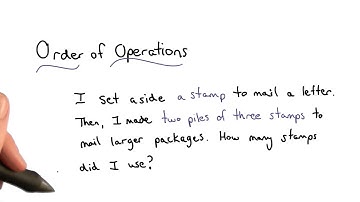 Order of Operations
I set aside a stamp to mail a letter.
Then, I made two piles of three stamps to
mail larger packages. How many stamps
did I use?